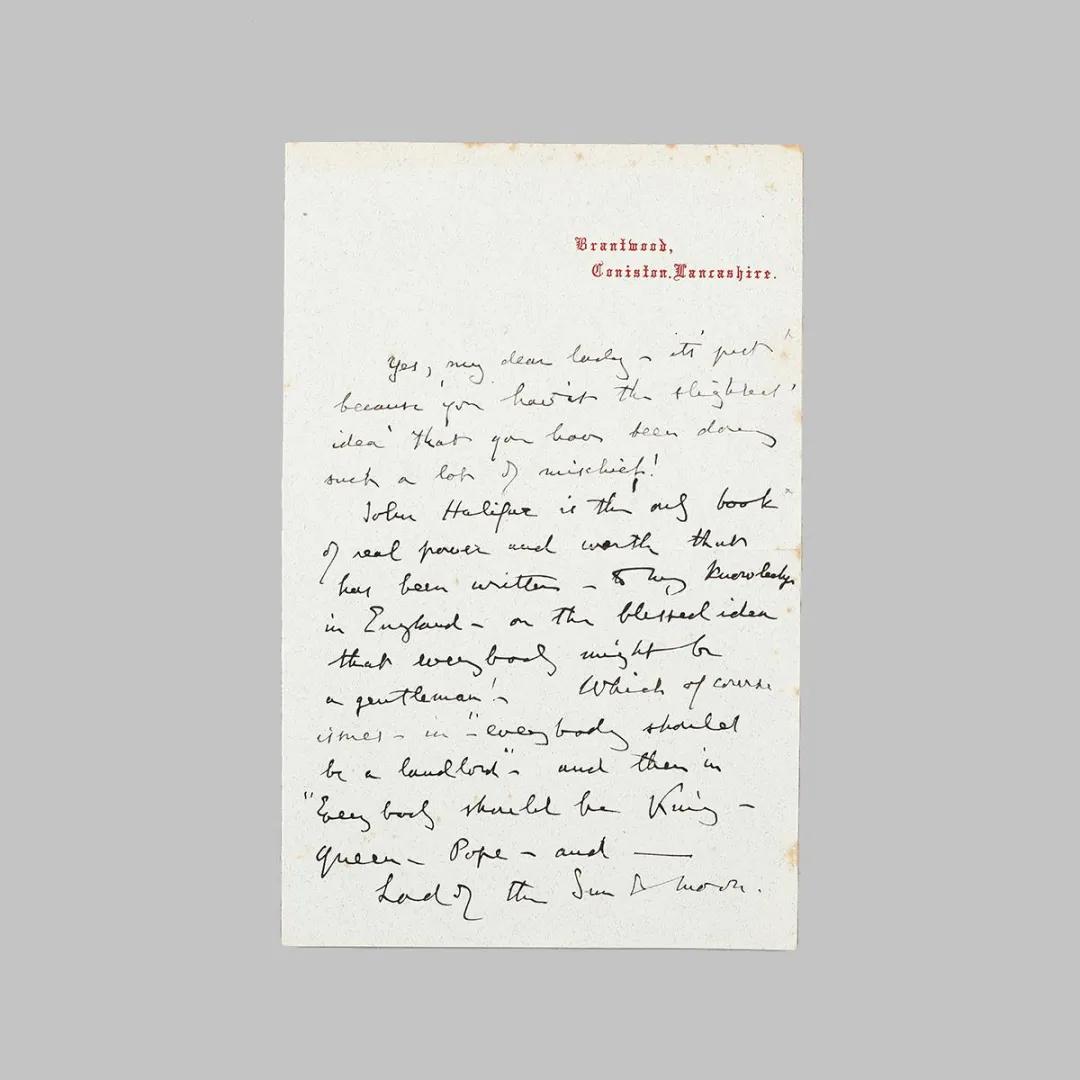 Brantwood,
Coniston. Lancashire.
Yes, my dear lady – it's just
because you hav'nt the slightest
idea that you have been doing
such a lot of mischief!
John Halifax is the only book
of real power and worth that
has been written – to my knowledge
in England – on the blessed idea
that everybody might be
a gentleman! – Which of course
issues – in "everybody should
be a landlord" – and then in
"Every body should be King –
Queen – Pope – and ——
Lord of the Sun & Moon.